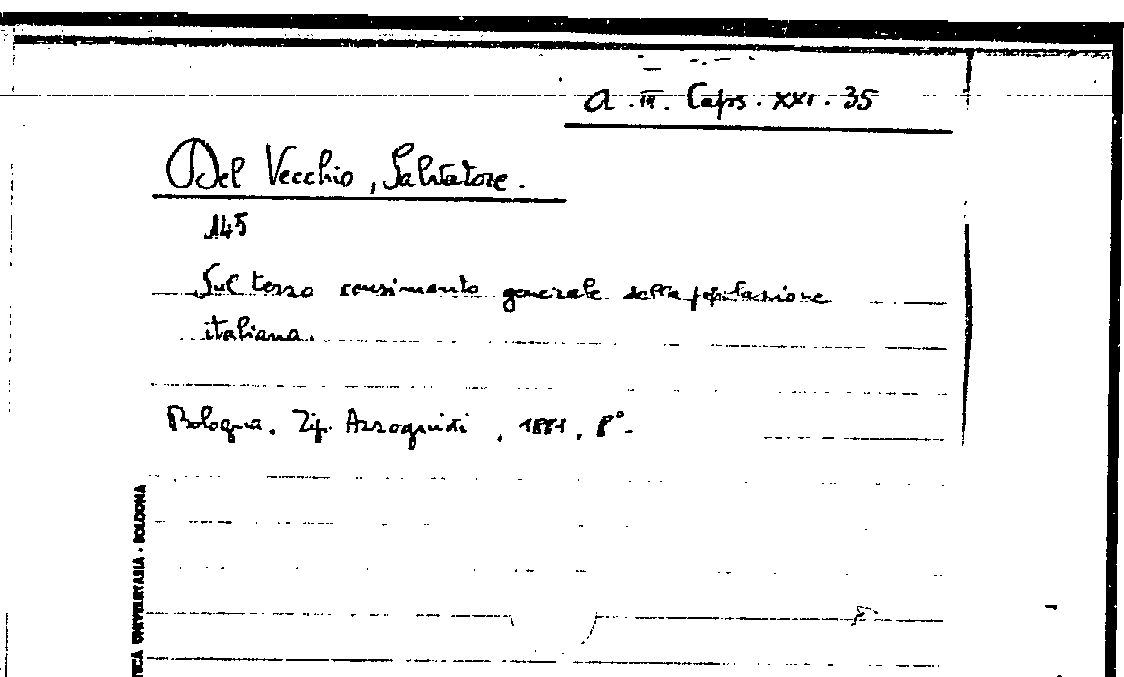 A. III. Caps. XXI. 35
Del Vecchio, Salvatore.
145
Sul terzo censimento generale della popolazione
italiana.
Bologna, Tip. Azzoguidi, 1881, 8°.
TECA UNIVERSITARIA - BOLOGNA